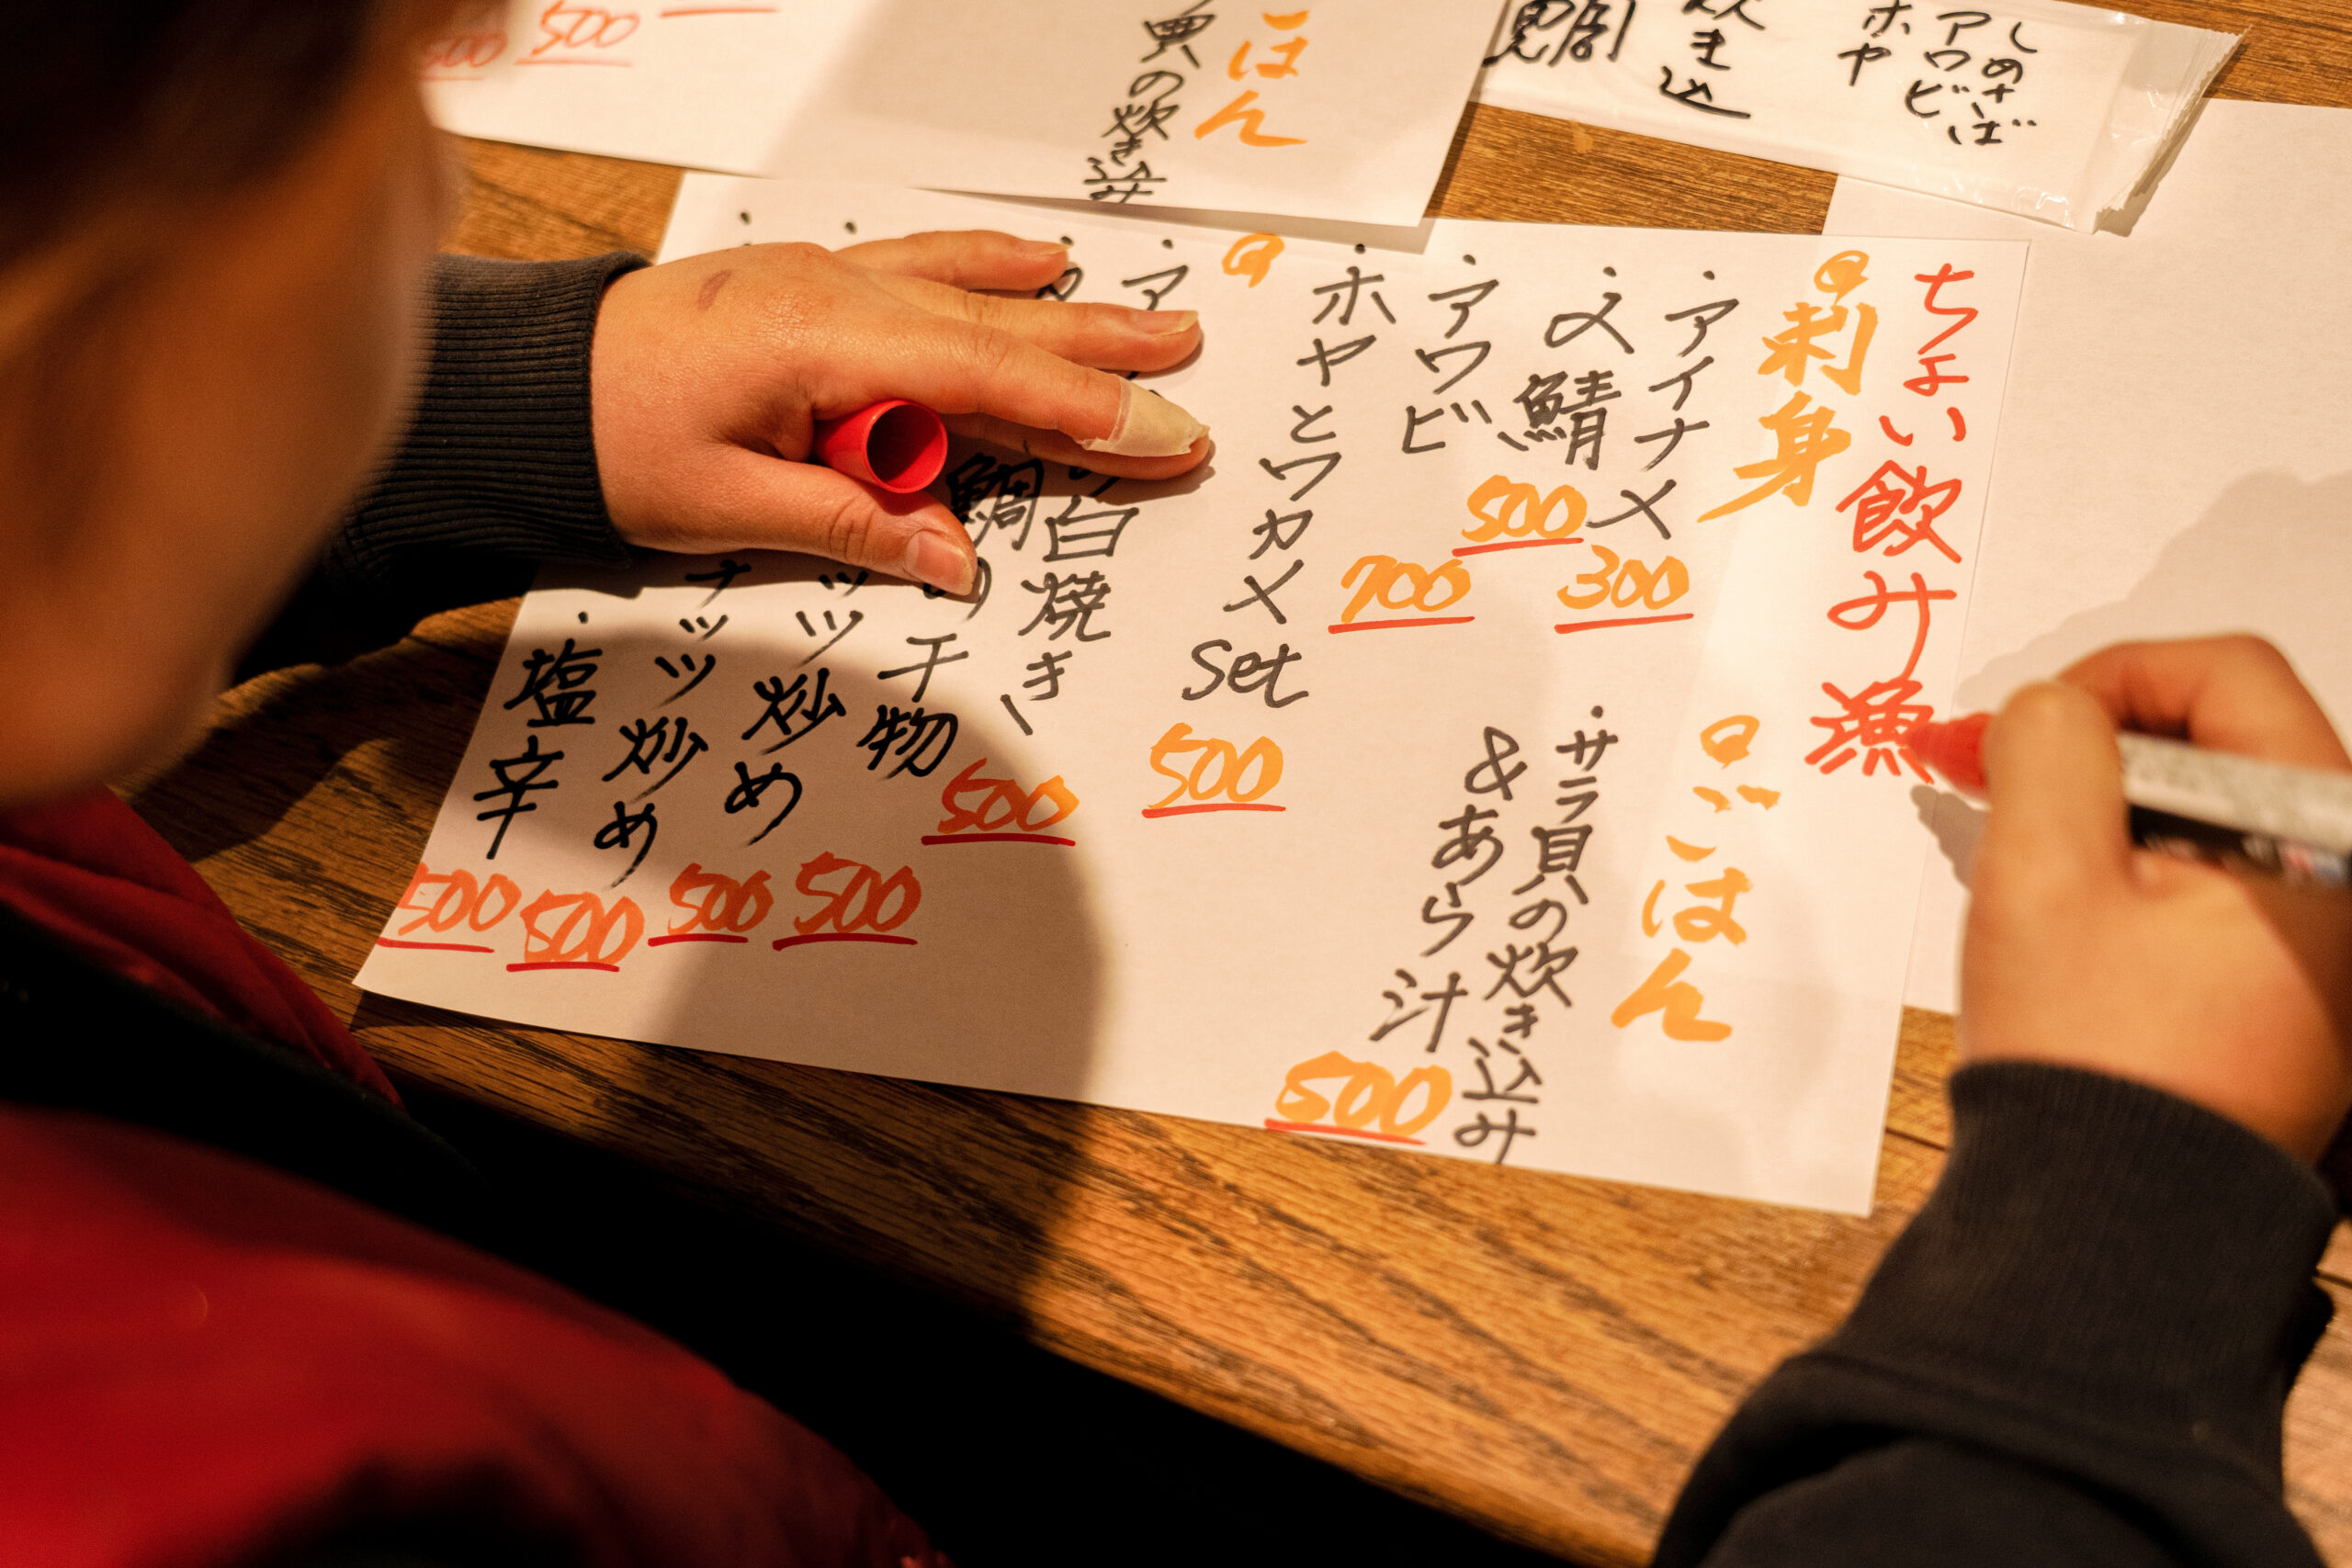 ちょい飲み漁
刺身
・アイナメ
300
・〆鯖
500
・アウビ
700
・ホヤとワカメ
set
500
・ア
の白焼きー
500
鯛の干物
500
ッツ炒め
500
ナッツ炒め
500
・塩辛
500
ごはん
・サラ貝の炊き込み
&あら汁
500
ごはん
貝の炊き込み
500
500
しめさば
アワビ
ホヤ
炊き込
鯛